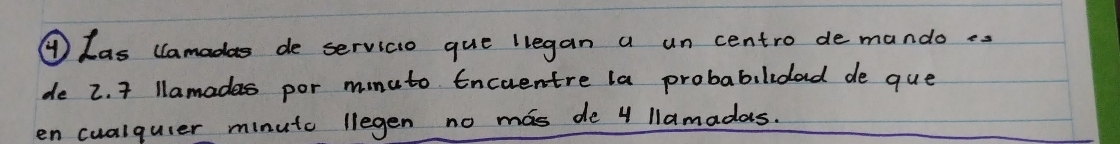 ④ Las llamadas de servicio que llegan a un centro de mando es
de 2.7 llamadas por minuto. Encuentre la probabilidad de que
en cualquier minuto llegen no más de 4 llamadas.